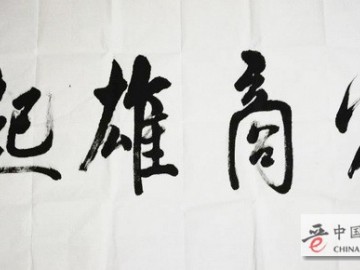 商雄起
中国
CHINA